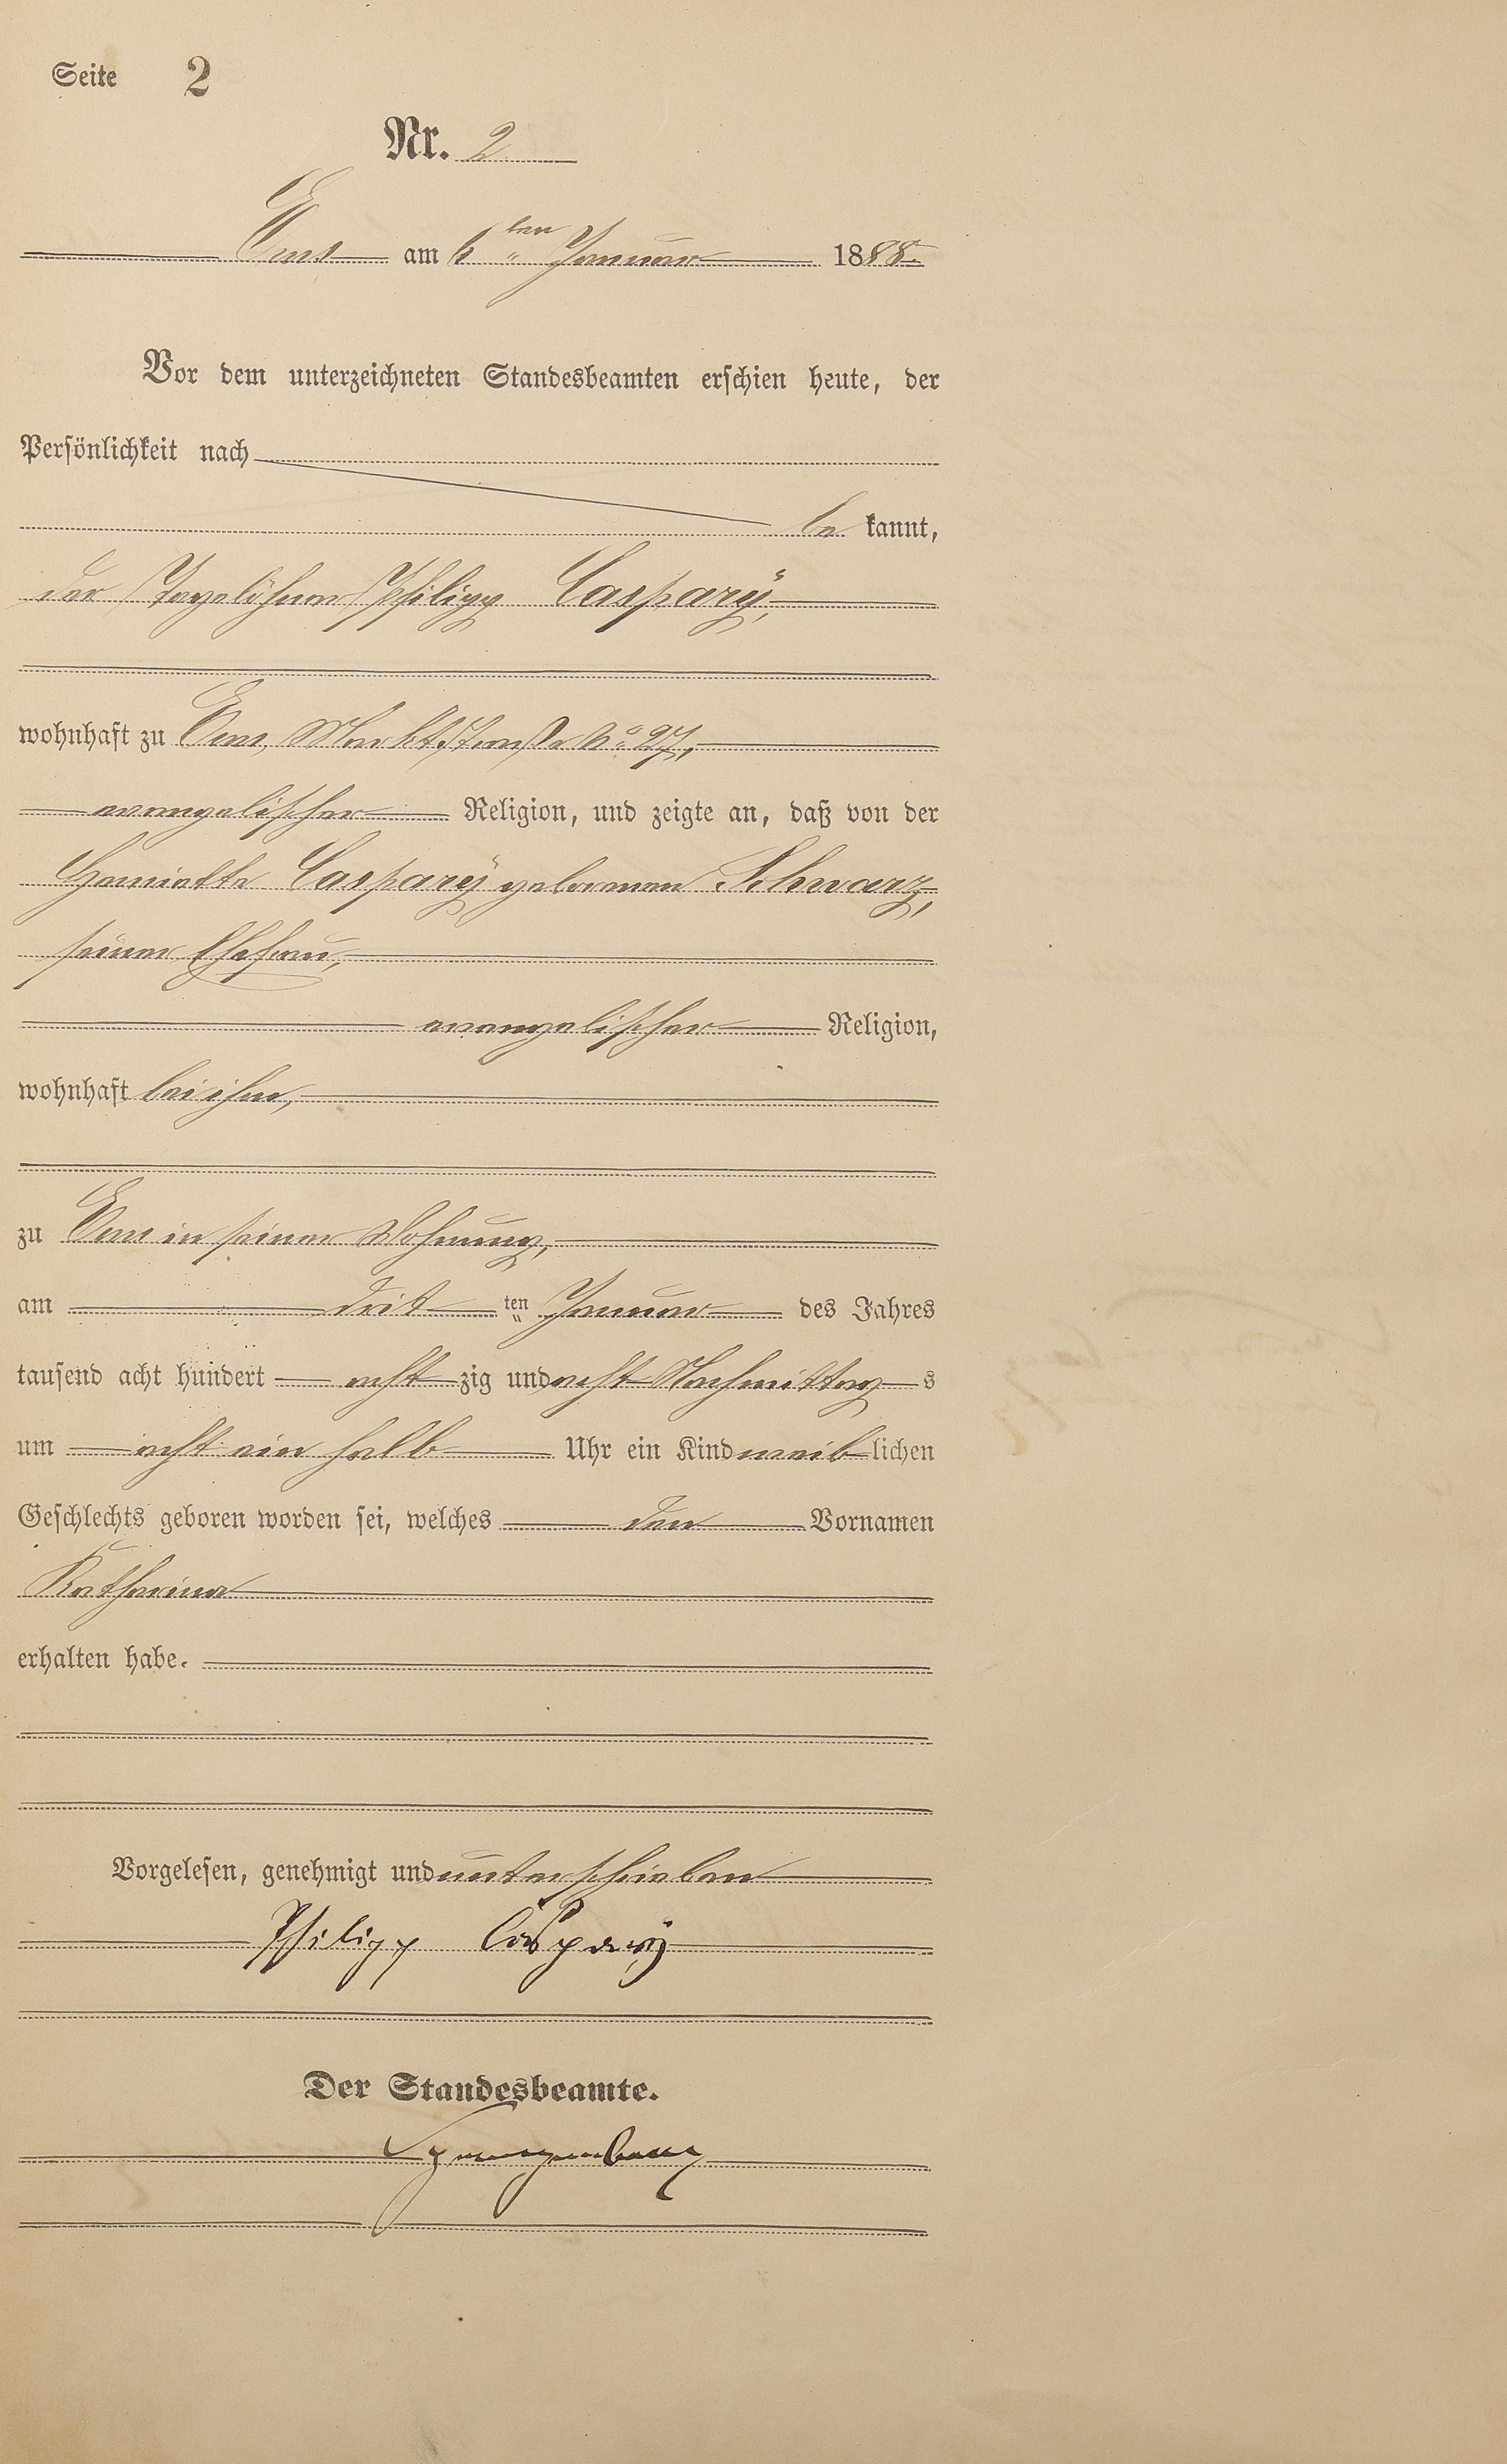 Seite 2
Nr. 2
Ems am 6ten Januar 1888.
Vor dem unterzeichneten Standesbeamten erschien heute, der
Persönlichkeit nach
be kannt,
der Tagelöhner Philipp Caspary,
wohnhaft zu Ems, Marktstraße No 27,
evangelischer Religion, und zeigte an, daß von der
Henriette Caspary geborenen Schwarz,
seiner Ehefrau,
evangelischer Religion,
wohnhaft bei ihm,
zu Ems in seiner Wohnung,
am drit ten Januar des Jahres
tausend acht hundert acht zig und acht Nachmittag s
um acht ein halb Uhr ein Kind weib lichen
Geschlechts geboren worden sei, welches den Vornamen
Katharina
erhalten habe.
Vorgelesen, genehmigt und unterschrieben
Philipp Caspary
Der Standesbeamte.